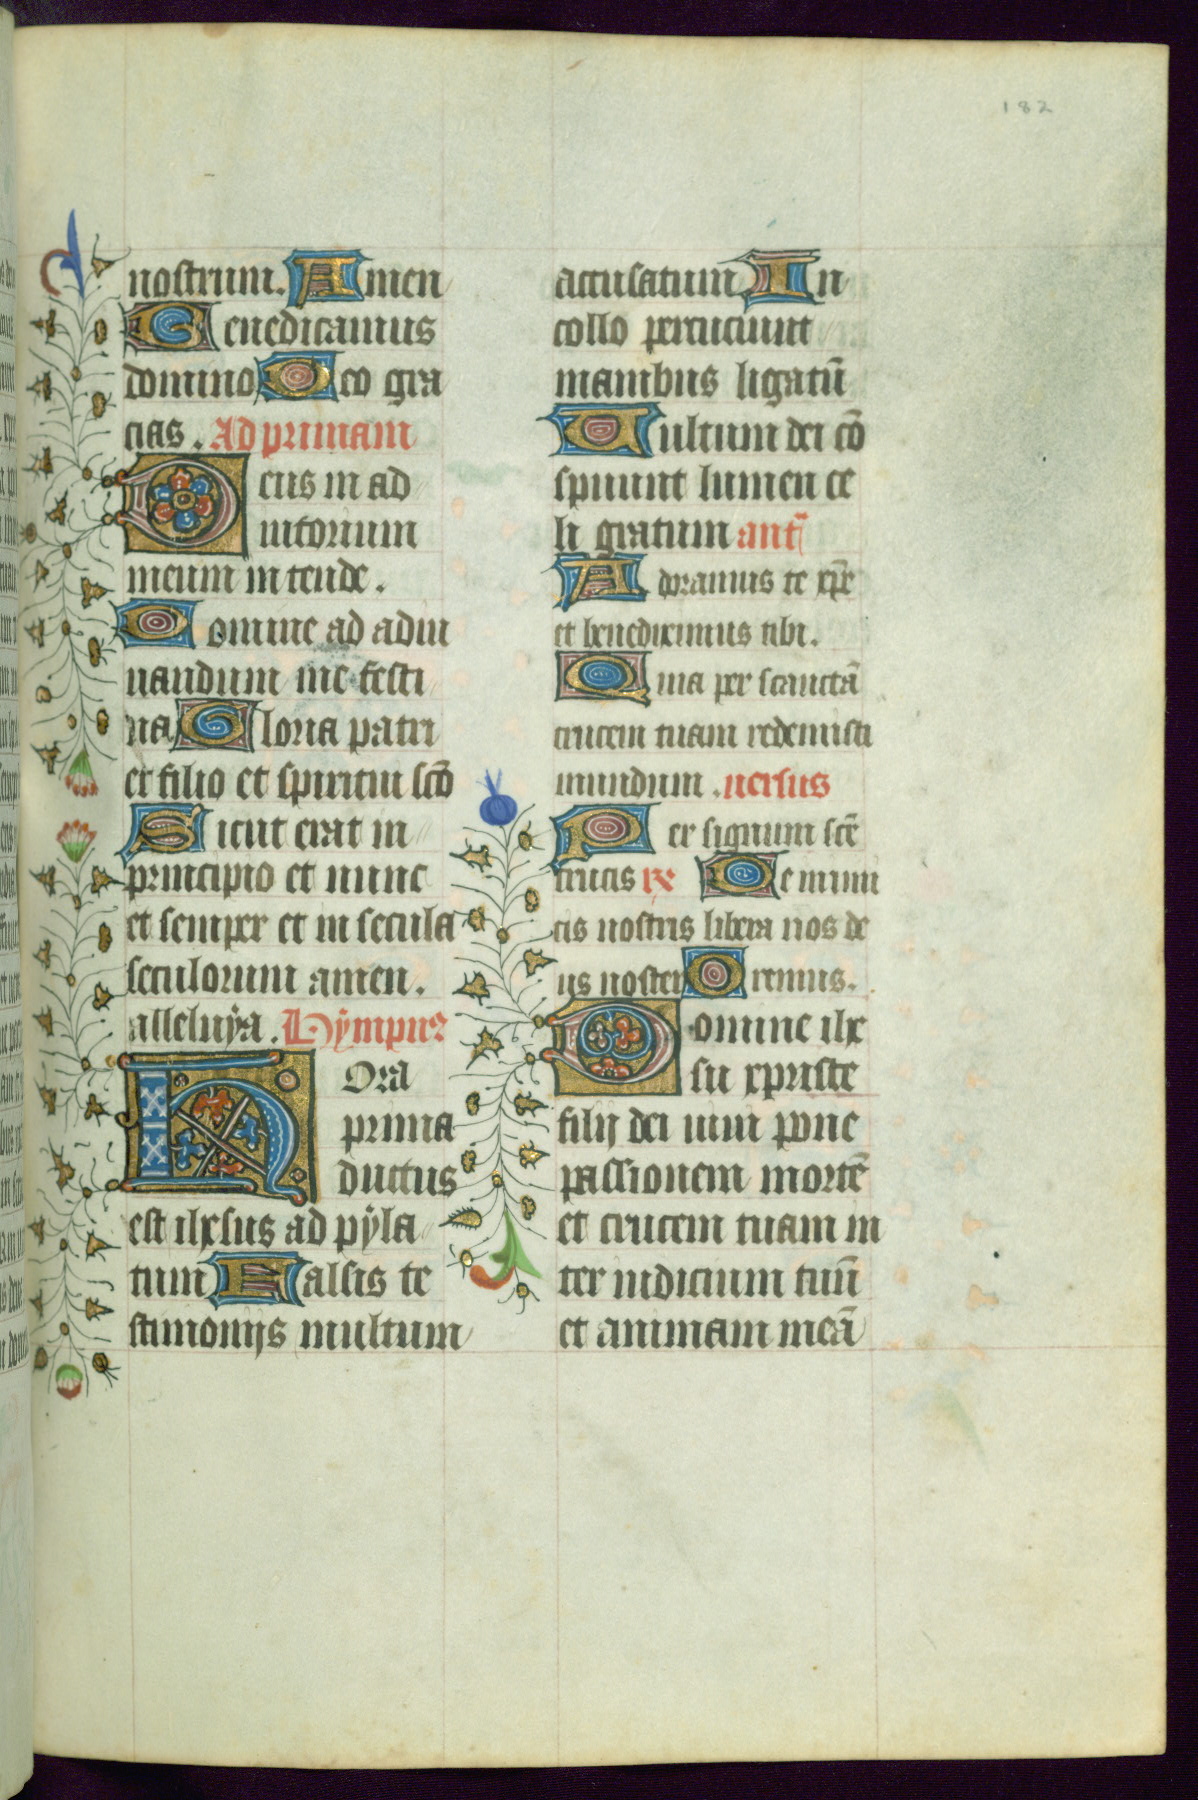 182
nostrum. Amen
Benedicamus
domino Deo gra
cias. Ad primam
Deus in ad
iutorium
meum intende.
Domine ad adiu
uandum me festi
na Gloria patri
et filio et spiritui scō
Sicut erat in
principio et nunc
et semper et in secula
seculorum amen.
alleluÿa. Hÿmpnꝰ
Hora
prima
ductus
est ihesus ad pÿla
tum Falsis te
stimonijs multum
accusatum In
collo percuciunt
manibus ligatū
Uultum dei cō
spuunt lumen ce
li gratum ant̄
Adoramus te xp̄e
et benediximus tibi.
Quia per scanctā
crucem tuam redemisti
mundum. uersus
Per signum scē
crucis ℟ De inimi
cis nostris libera nos de
us noster Oremus.
Domine ihe
su xpriste
filij dei uiui pone
passionem mortē
et crucem tuam in
ter iudicium tuū
et animam meā